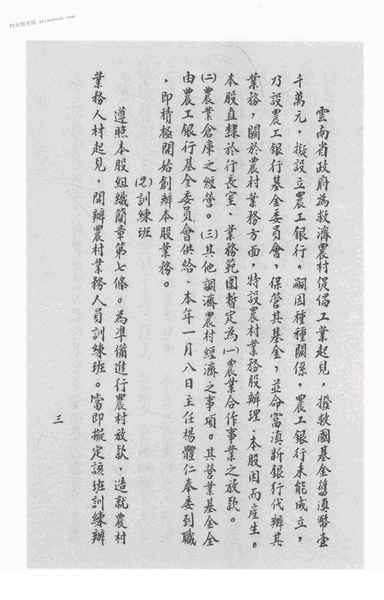 雲南省政府為救濟農村促倡工業起見，撥救國基金舊滇幣壹
千萬元，擬設立農工銀行。嗣因種種關係，農工銀行未能成立，
乃設農工銀行基金委員會，保管其基金，並命富滇新銀行代辦其
業務，關於農村業務方面，特設農村業務股辦理、本股因而產生。
本股直隸於行長室、業務範圍暫定為㈠農業合作事業之放款。
㈡農業倉庫之經營。㈢其他調濟農村經濟之事項。其營業基金全
由農工銀行基金委員會供給、本年一月八日主任楊體仁奉委到職
，即積極開始創辦本股業務。
(2)訓練班
遵照本股組織簡章第七條。為準備進行農村放款、造就農村
業務人材起見，開辦農村業務人員訓練班。當即擬定該班訓練辦
三